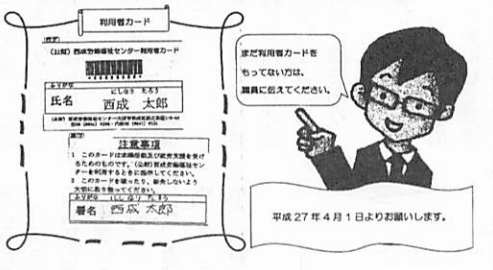 利用者カード
(公財) 西成労働福祉センター利用者カード
ふりがな にしなり たろう
氏名 西成 太郎
注意事項
1 このカードは求職活動及び就労支援を受け
るためのものです。(公財) 西成労働福祉セン
ターを利用するときに提示してください。
2 このカードを破ったり、紛失しないよう
大切に取り扱ってください。
ふりがな にしなり たろう
署名 西成 太郎
まだ利用者カードを
もってない方は、
職員に伝えてください。
平成27年4月1日よりお願いします。